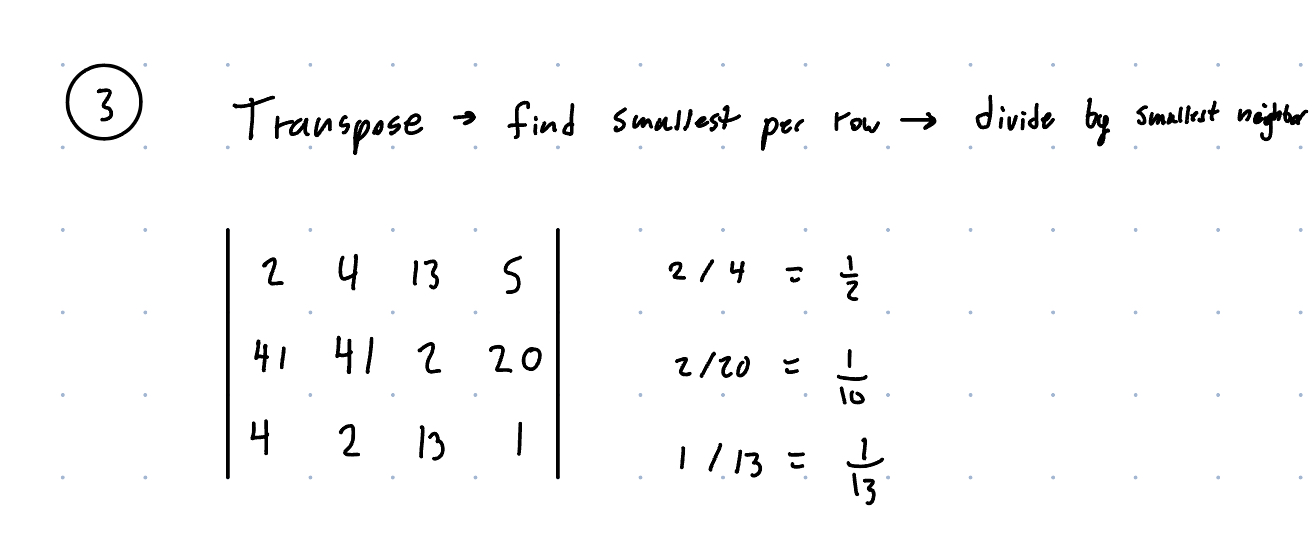 3 Transpose → find smallest per row → divide by smallest neighbor
2 4 13 5 2 / 4 = 1/2
41 41 2 20 2/20 = 1/10
4 2 13 1 1 / 13 = 1/13